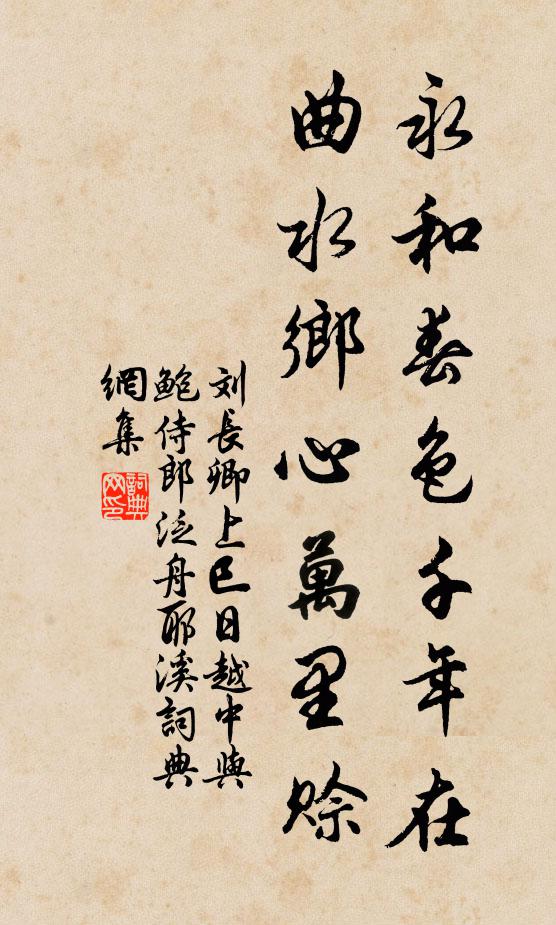 永和春色千年在
曲水鄉心萬里賒
刘長卿上巳日越中與
鮑侍郎泛舟耶溪詞典
網集
詞典
网印